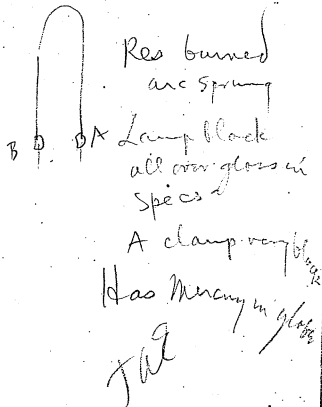 Res burned
arc sprung
B A Lamp black
all over glass in
specs
A clamp very black
Has Mercury in globe
JWG